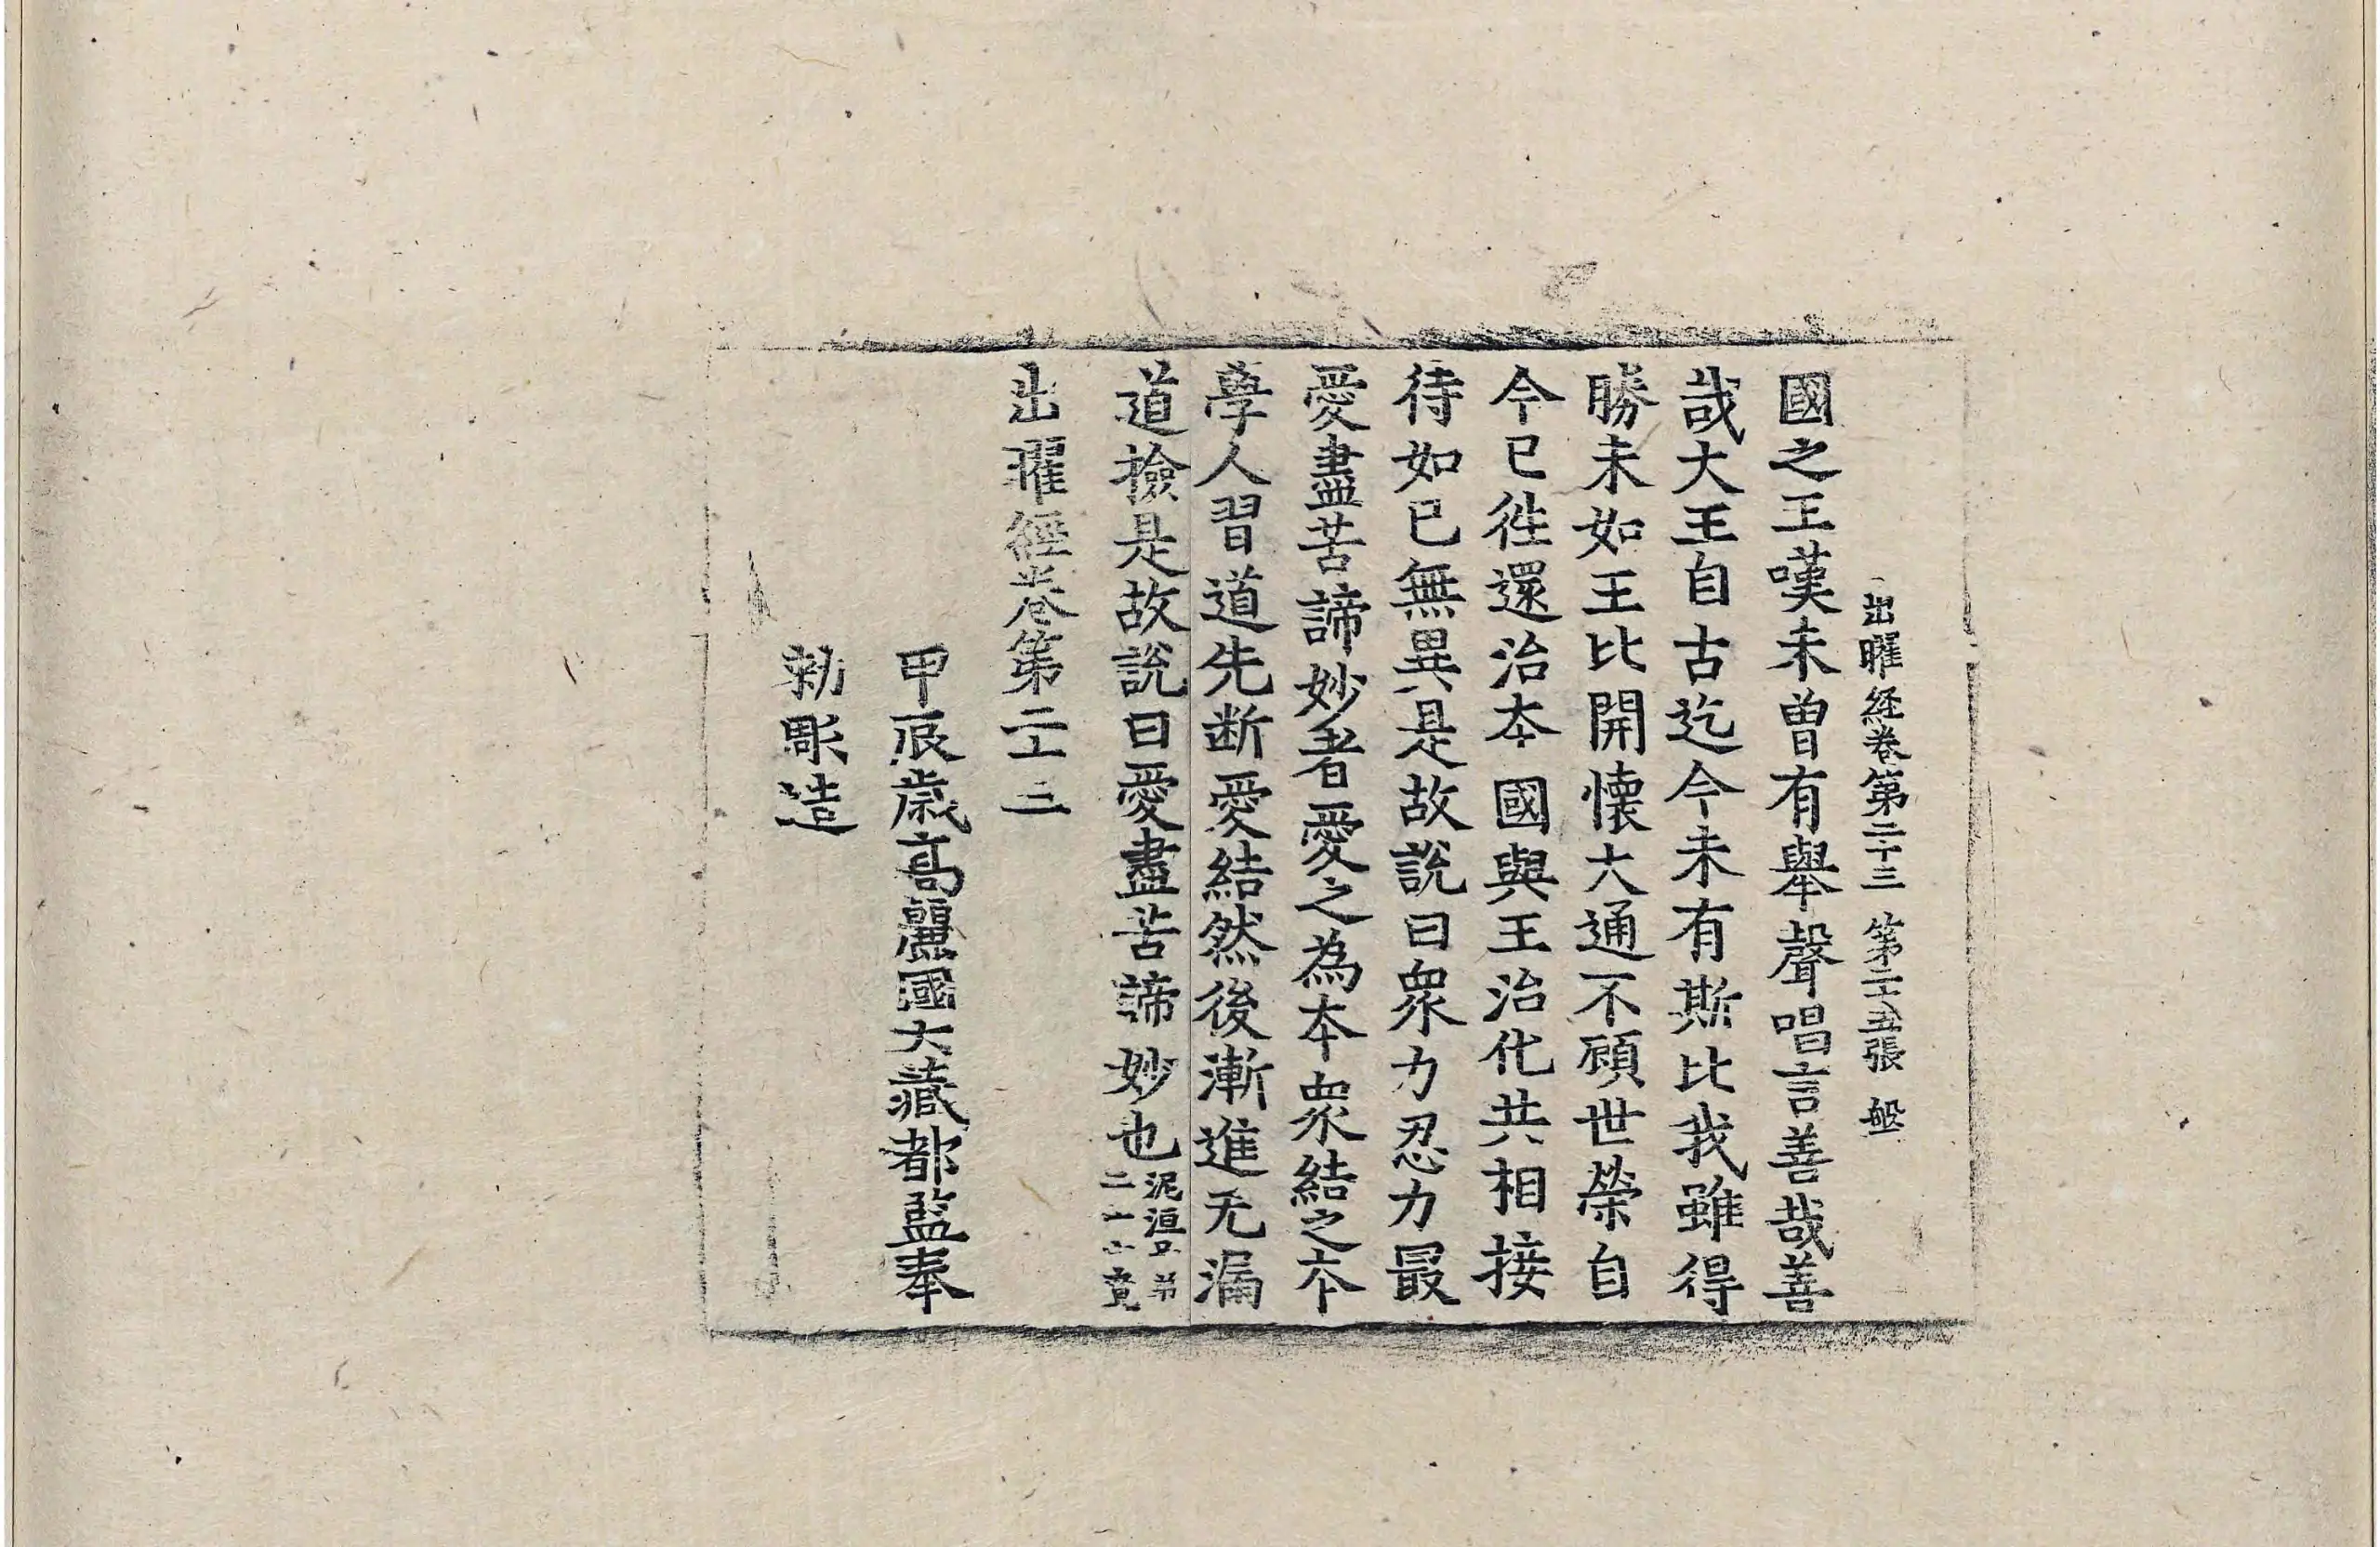 出曜経卷第二十三 第二十五張 盤
國之王嘆未曾有舉聲唱言善哉善
哉大王自古迄今未有斯比我雖得
勝未如王比開懷大通不顧世榮自
今已徃還治夲國與王治化共相接
待如已無異是故說曰衆力忍力最
愛盡苦諦妙者愛之為夲衆結之夲
學人習道先断愛結然後漸進无漏
道撿是故說曰愛盡苦諦妙也泥洹品第
二十七竟
出曜經卷第二十三
甲辰歲高麗國大藏都監奉
勑彫造